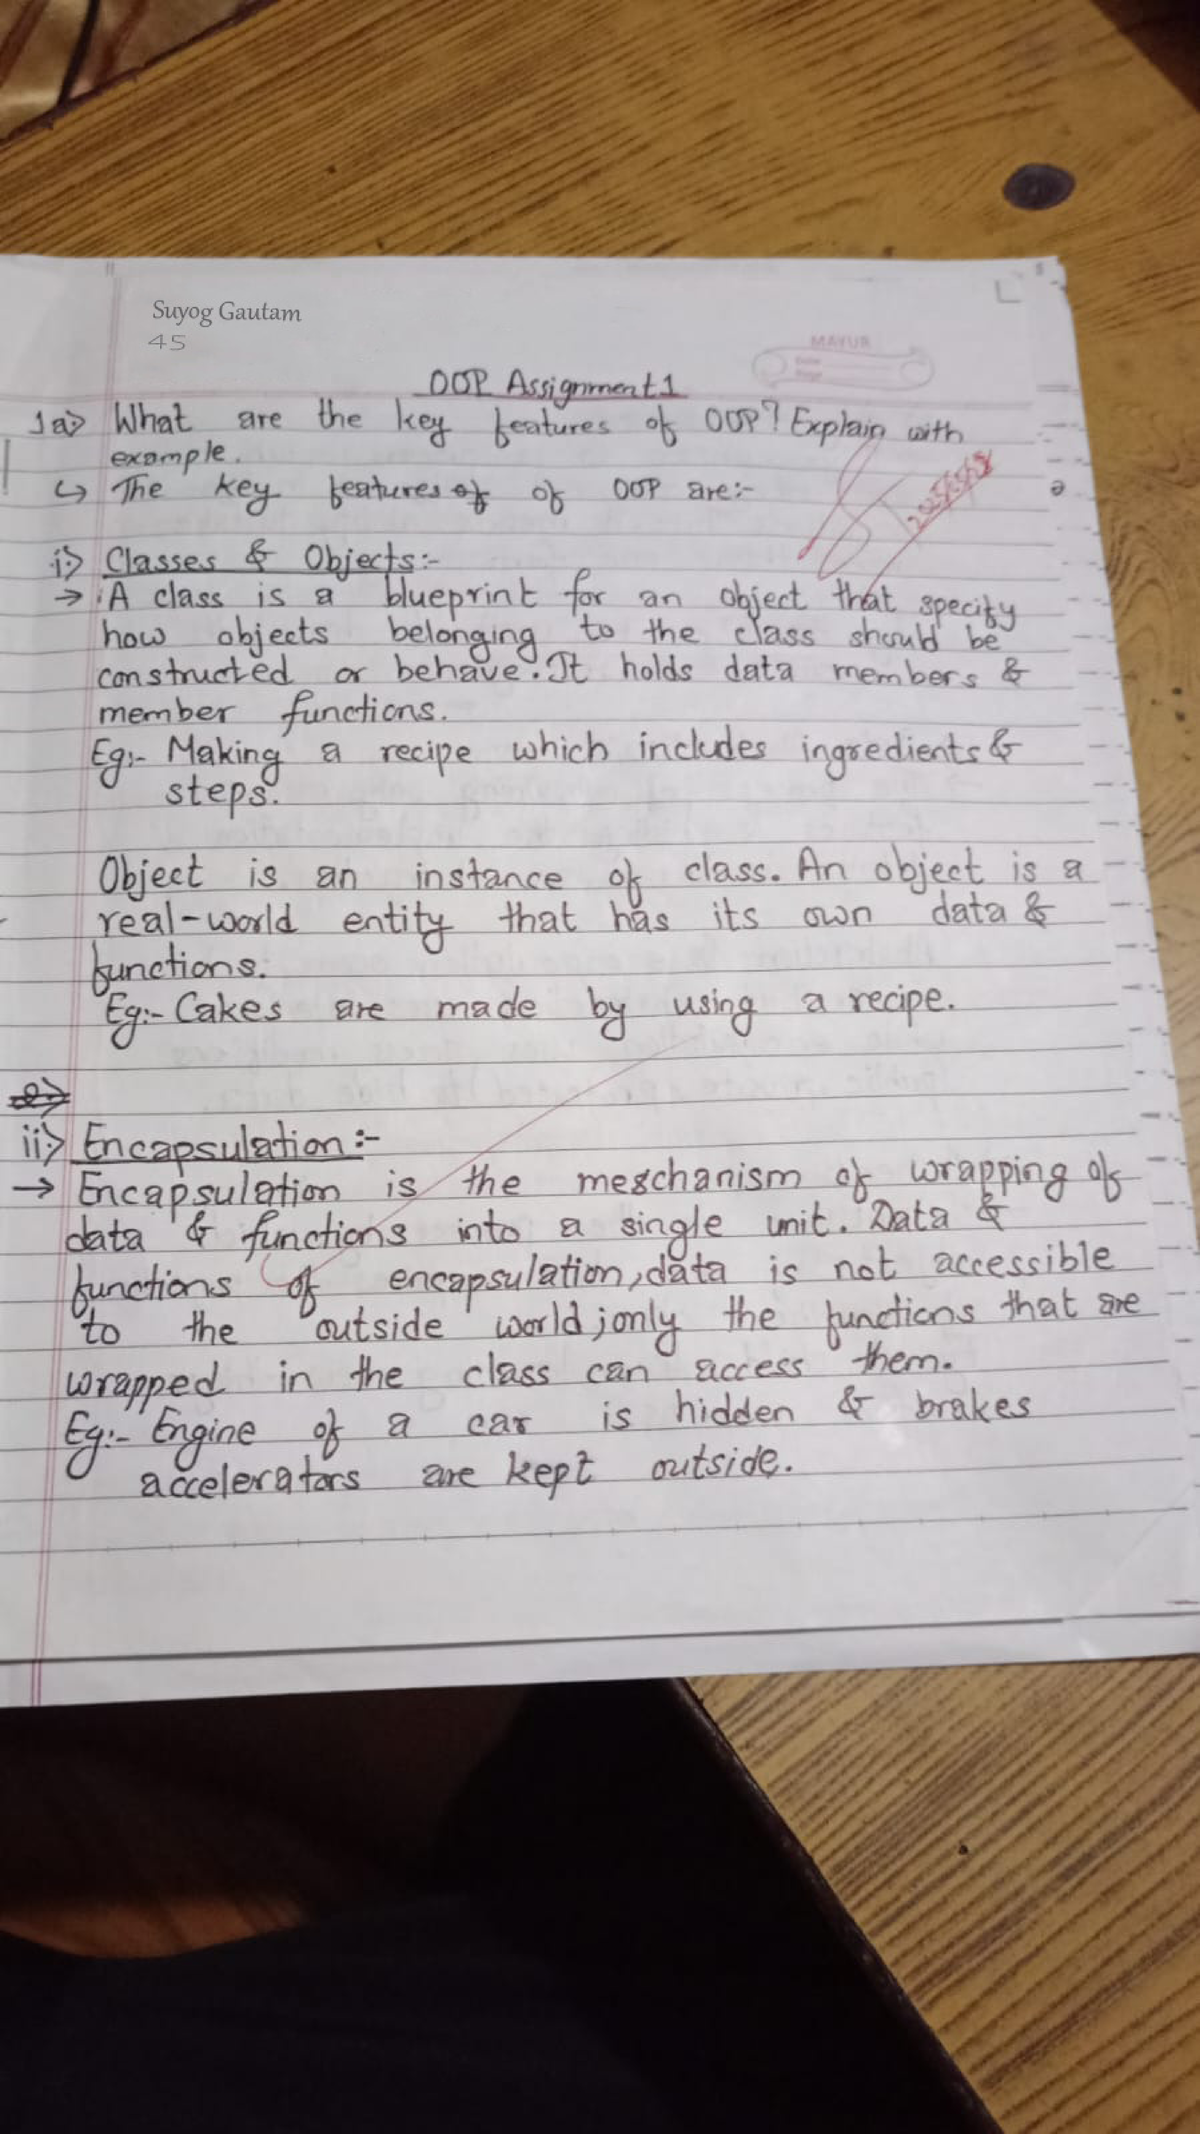 Suyog Gautam
45
MAYUR
OOP Assignment 1
1a) What are the key features of OOP? Explain with
example.
↳ The key features of of OOP are:-
i) Classes & Objects:-
→ A class is a blueprint for an object that specify
how objects belonging to the class should be
constructed or behave. It holds data members &
member functions.
Eg:- Making a recipe which includes ingredients &
steps.
Object is an instance of class. An object is a
real-world entity that has its own data &
functions.
Eg:- Cakes are made by using a recipe.
ii) Encapsulation:-
→ Encapsulation is the meschanism of wrapping of
data & functions into a single unit. Data &
functions of encapsulation, data is not accessible
to the outside world; only the functions that are
wrapped in the class can access them.
Eg:- Engine of a car is hidden & brakes
accelerators are kept outside.